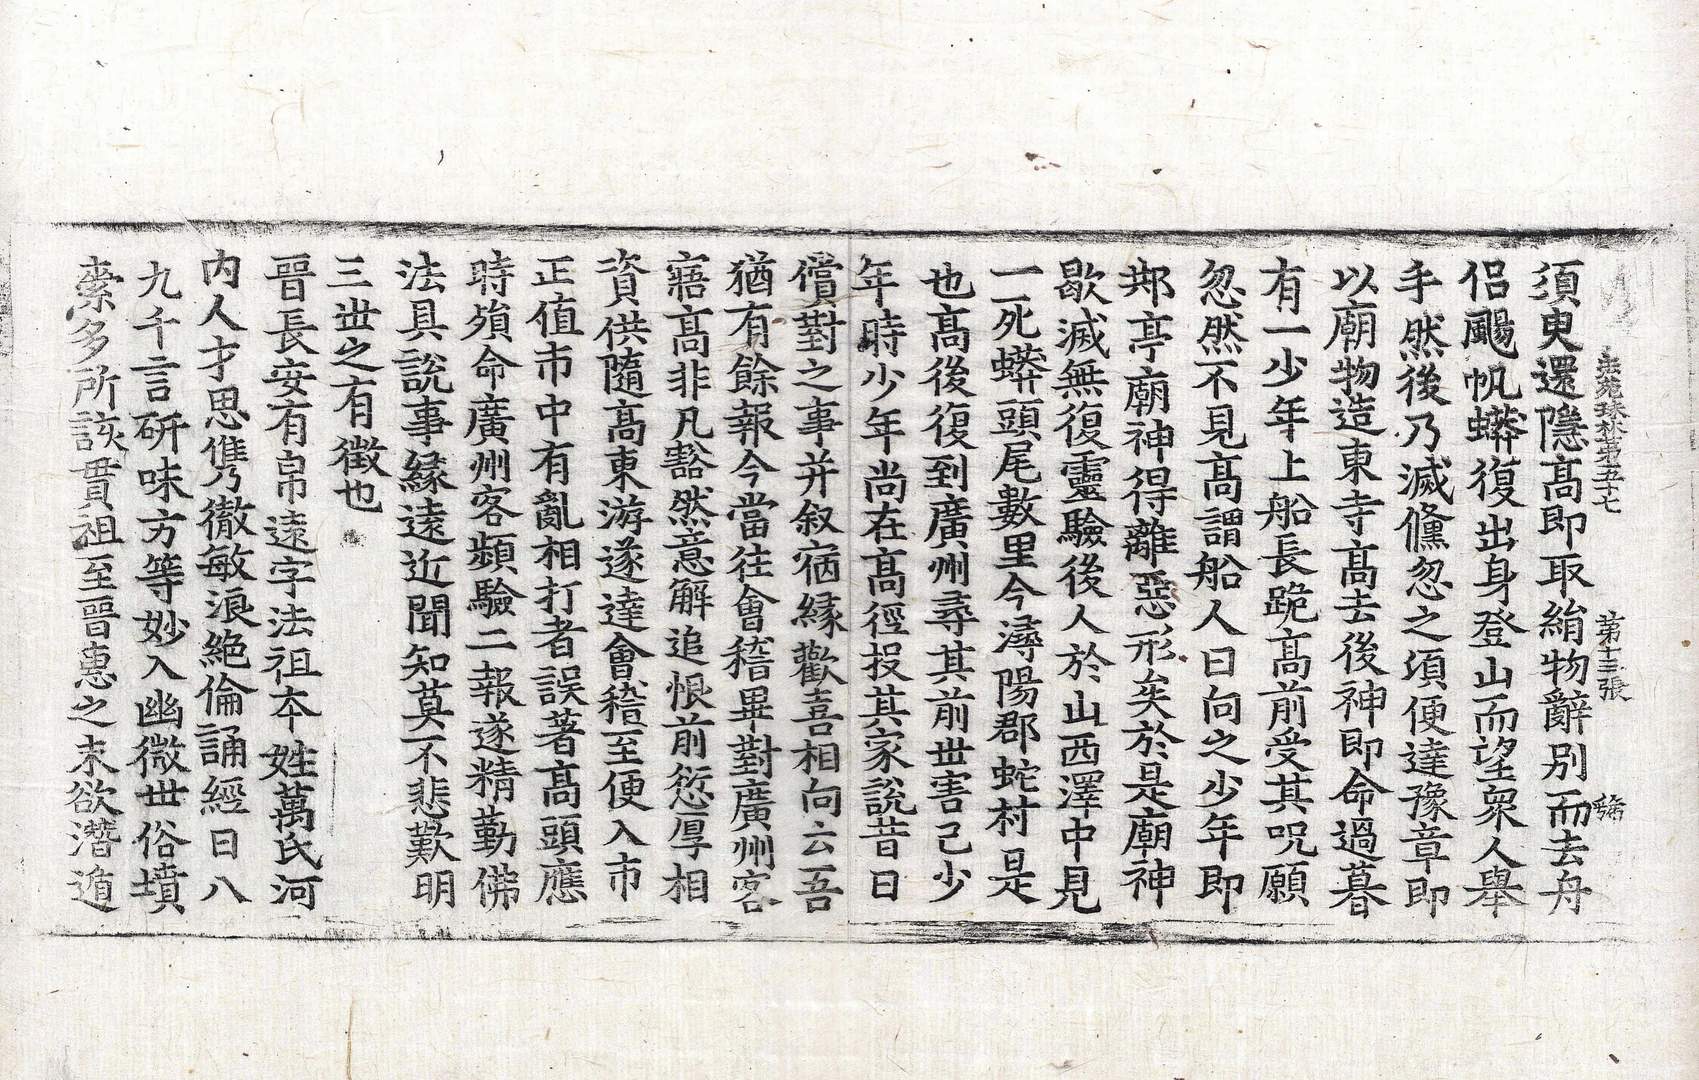 法苑珠林第五十七 第十三張 㢸
須臾還隱高即取絹物辭別而去舟
侶颺帆蟒復出身登山而望衆人舉
手然後乃滅儵忽之須便達豫章即
以廟物造東寺高去後神即命過暮
有一少年上船長跪高前受其呪願
忽然不見高謂船人曰向之少年即
䢼亭廟神得離惡形矣於是廟神
歇滅無復靈驗後人於山西澤中見
一死蟒頭尾數里今潯陽郡蛇村是
也高後復到廣州尋其前丗害己少
年時少年尚在高徑投其家說昔日
償對之事并叙宿緣歡喜相向云吾
猶有餘報今當往會稽畢對廣州客
寤高非凡豁然意解追恨前愆厚相
資供隨高東游遂達會稽至便入市
正值市中有亂相打者誤著高頭應
時殞命廣州客頻驗二報遂精勤佛
法具說事緣遠近聞知莫不悲歎明
三丗之有徵也
晉長安有帛遠字法祖本姓萬氏河
内人才思儁徹敏浪絶倫誦經日八
九千言研味方等妙入幽微世俗墳
索多所該貫祖至晉惠之末欲潛遁